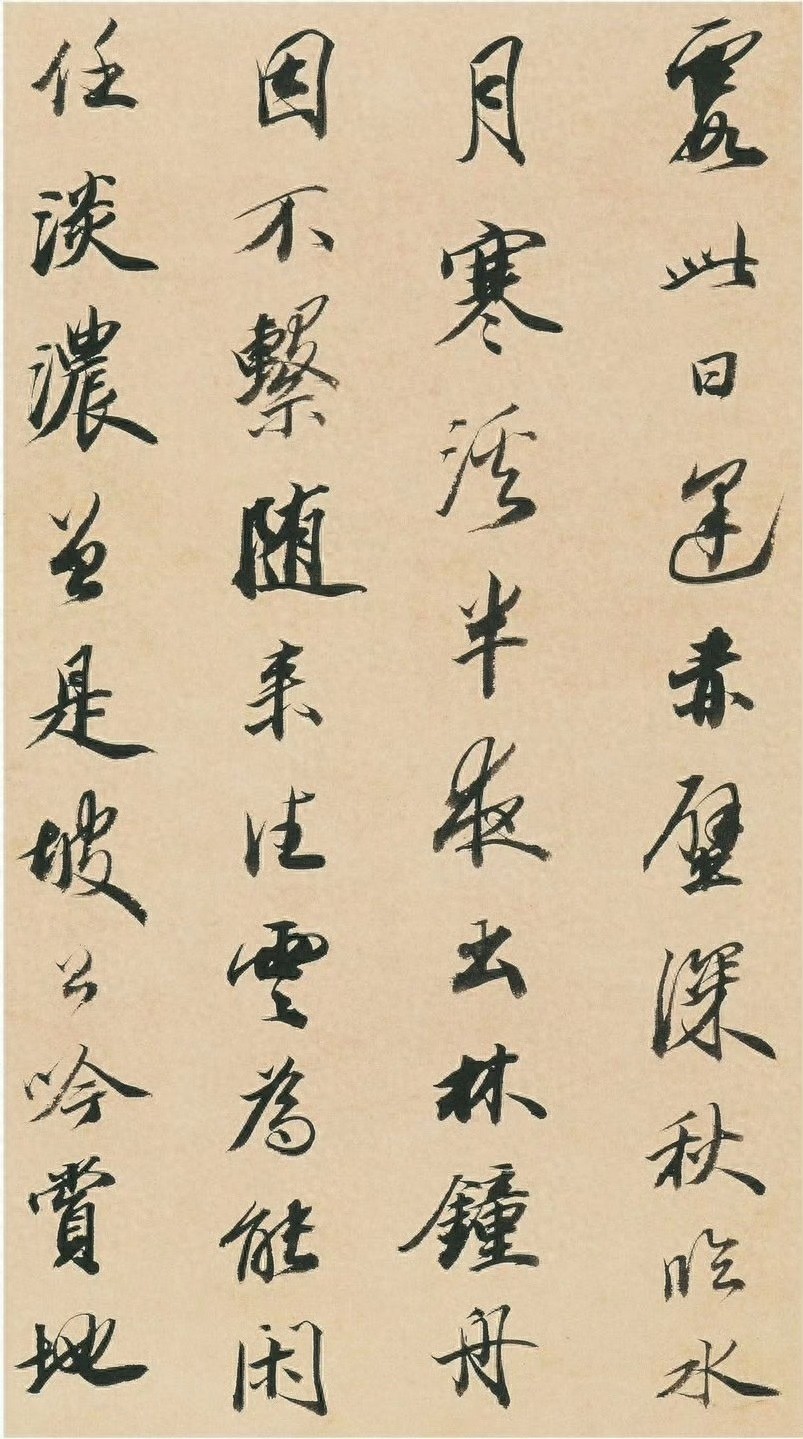 霞此日逢赤壁深秋臨水
月寒溪半夜出林鐘舟
因不繫随来往雲為能闲
任淡濃曾是坡公吟賞地